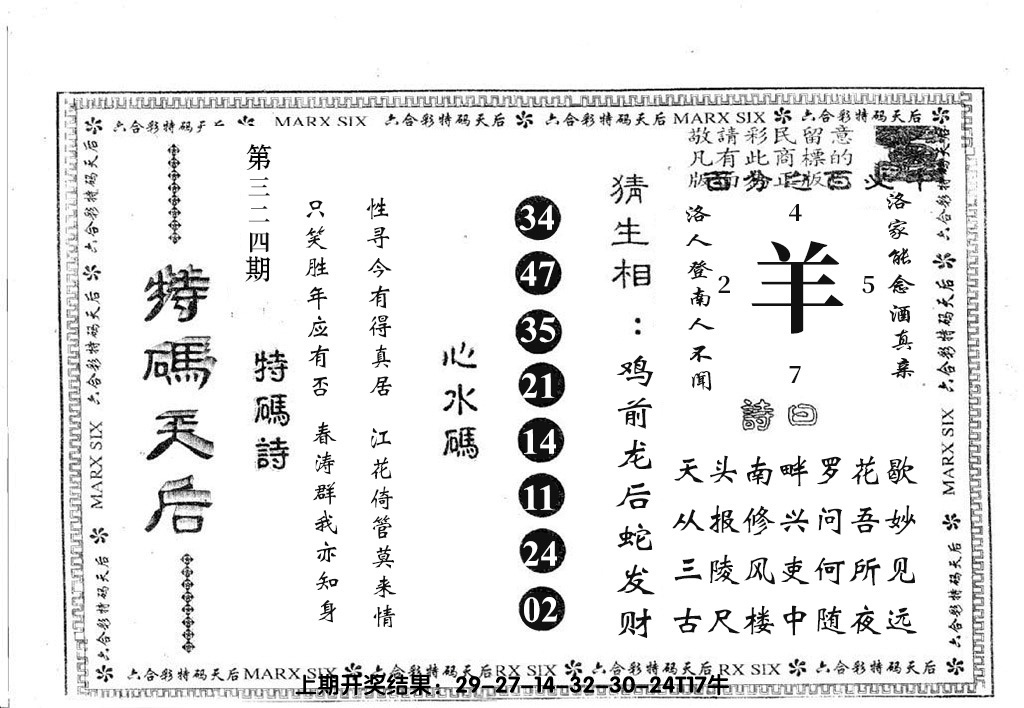 六合彩特码天后 MARX SIX 六合彩特码天后 六合彩特码天后 MARX SIX 六合彩特码天后
敬請彩民留意
凡有此商標的
版面为正版
洛家能念酒真亲
4
2 羊 5
7
洛人登南人不闻
詩曰
天头南畔罗花歇
从报修兴问吾妙
三陵风吏何所见
古尺楼中随夜远
猜生相：鸡前龙后蛇发财
34
47
35
21
14
11
24
02
心水碼
性寻今有得真居 江花倚管莫来情
只笑胜年应有否 春涛群我亦知身
第三二四期
特碼詩
特碼天后
六合彩特码天后 六合彩特码天后 MARX SIX 六合彩特码天后
六合彩特码天后 六合彩特码天后 MARX SIX 六合彩特码天后
六合彩特码天后 MARX SIX 六合彩特码天后 RX SIX 六合彩特码天后 RX SIX 六合彩特码天后
上期开奖结果：29-27-14-32-30-24T17牛